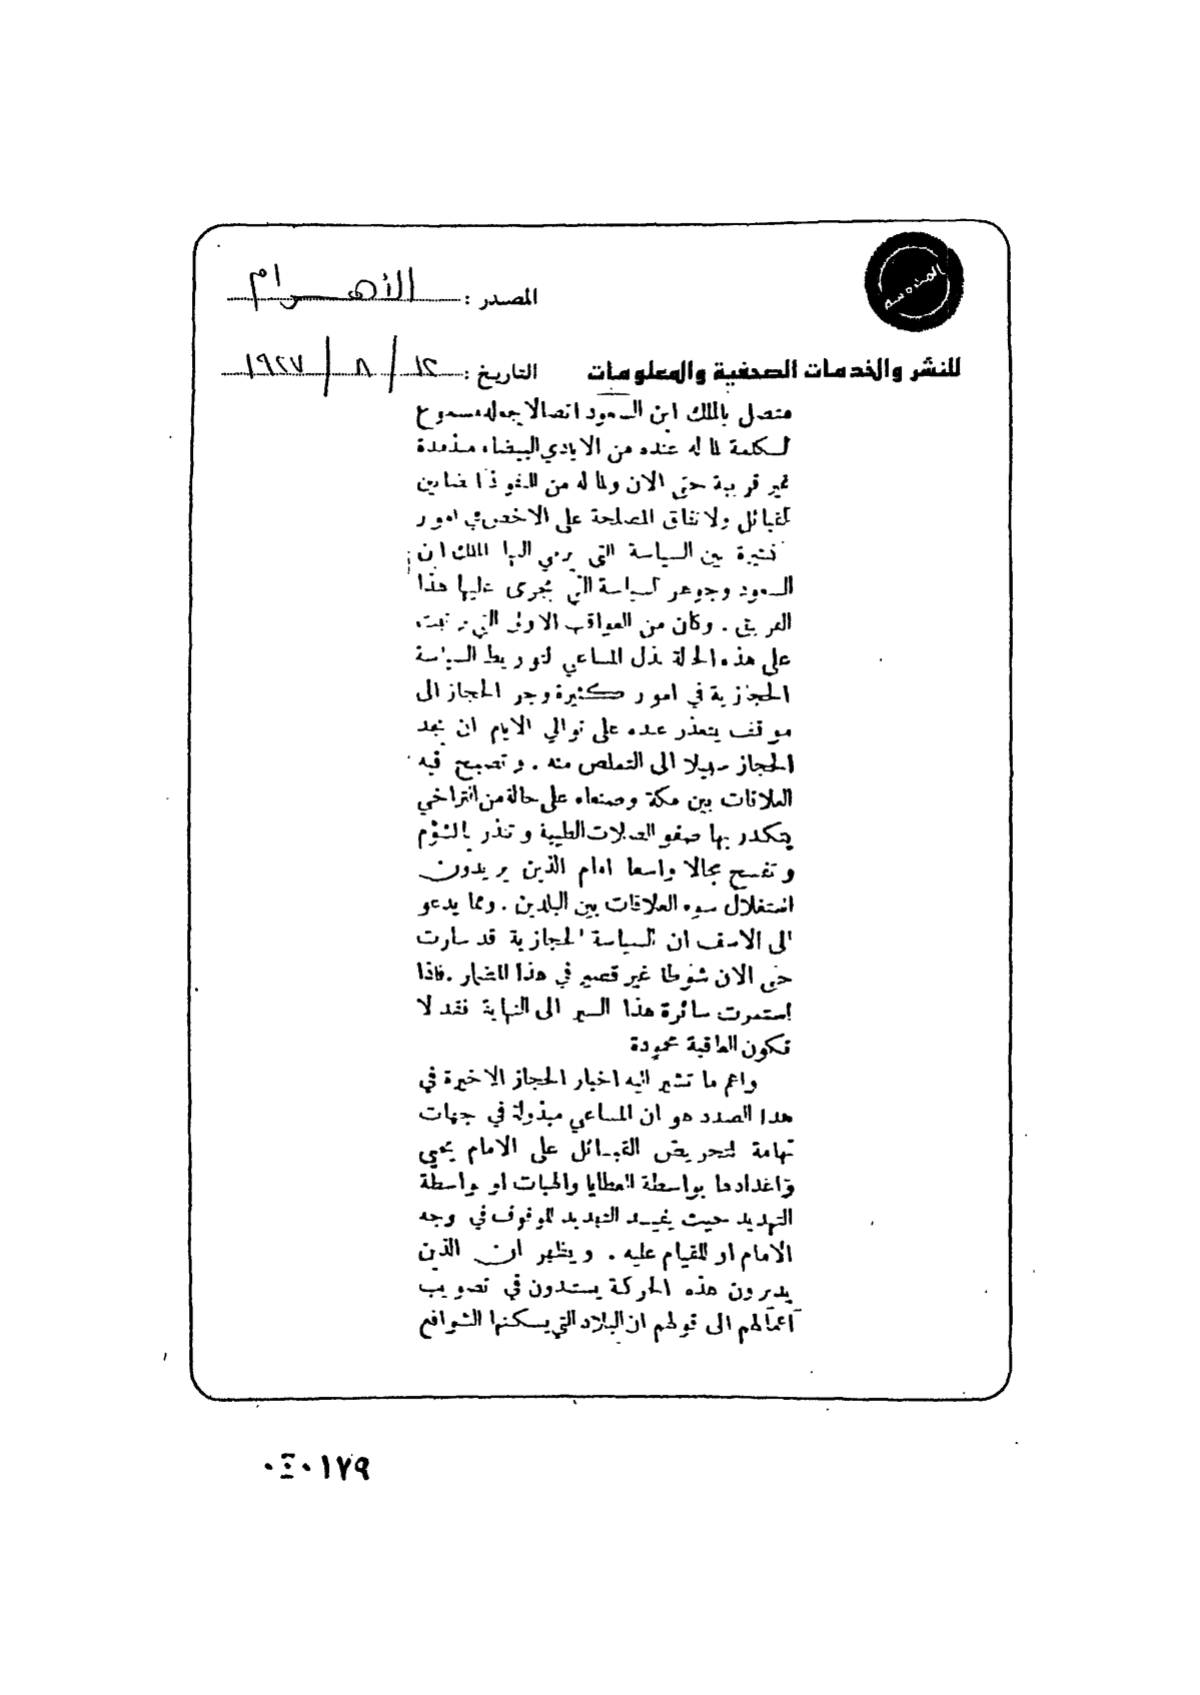 المصدر : الأهرام
للنشر والخدمات الصحفية والمعلومات
التاريخ : ١٢ / ٨ / ١٩٢٧
متصل بالملك ابن السعود اتصالا يجعله مسموع
الكلمة لما له عنده من الايادي البيضاء منذ مدة
غير قريبة حتى الان ولما له من النفوذ
القبائل ولاتفاق المصلحة على الاخص في امور
كثيرة بين السياسة التي يرمي اليها الملك ابن
السعود وجوهر السياسة التي يجري عليها هذا
الفريق . وكان من العواقب الاولى التي ترتبت
على هذه الحالة بذل المساعي لتوريط السياسة
الحجازية في امور كثيرة وجر الحجاز الى
موقف يتعذر عنده على توالي الايام ان يجد
الحجاز سبيلا الى التملص منه . وتصبح فيه
العلاقات بين مكة وصنعاء على حالة من التراخي
يتكدر بها صفو الصلات الطيبة وتنذر بالشؤم
وتفسح مجالا واسعا امام الذين يريدون
استغلال سوء العلاقات بين البلدين . ومما يدعو
الى الاسف ان السياسة الحجازية قد سارت
حتى الان شوطا غير قصير في هذا المضمار . فاذا
استمرت سائرة هذا السير الى النهاية فقد لا
تكون العاقبة محمودة
واهم ما تشير اليه اخبار الحجاز الاخيرة في
هذا الصدد هو ان المساعي مبذولة في جهات
تهامة لتحريض القبائل على الامام يحيى
واغدادها بواسطة العطايا والهبات او بواسطة
التهديد حيث يفيد التهديد للوقوف في وجه
الامام او للقيام عليه . ويظهر ان الذين
يديرون هذه الحركة يستندون في تصويب
اعمالهم الى قولهم ان البلاد التي يسكنها الشوافع